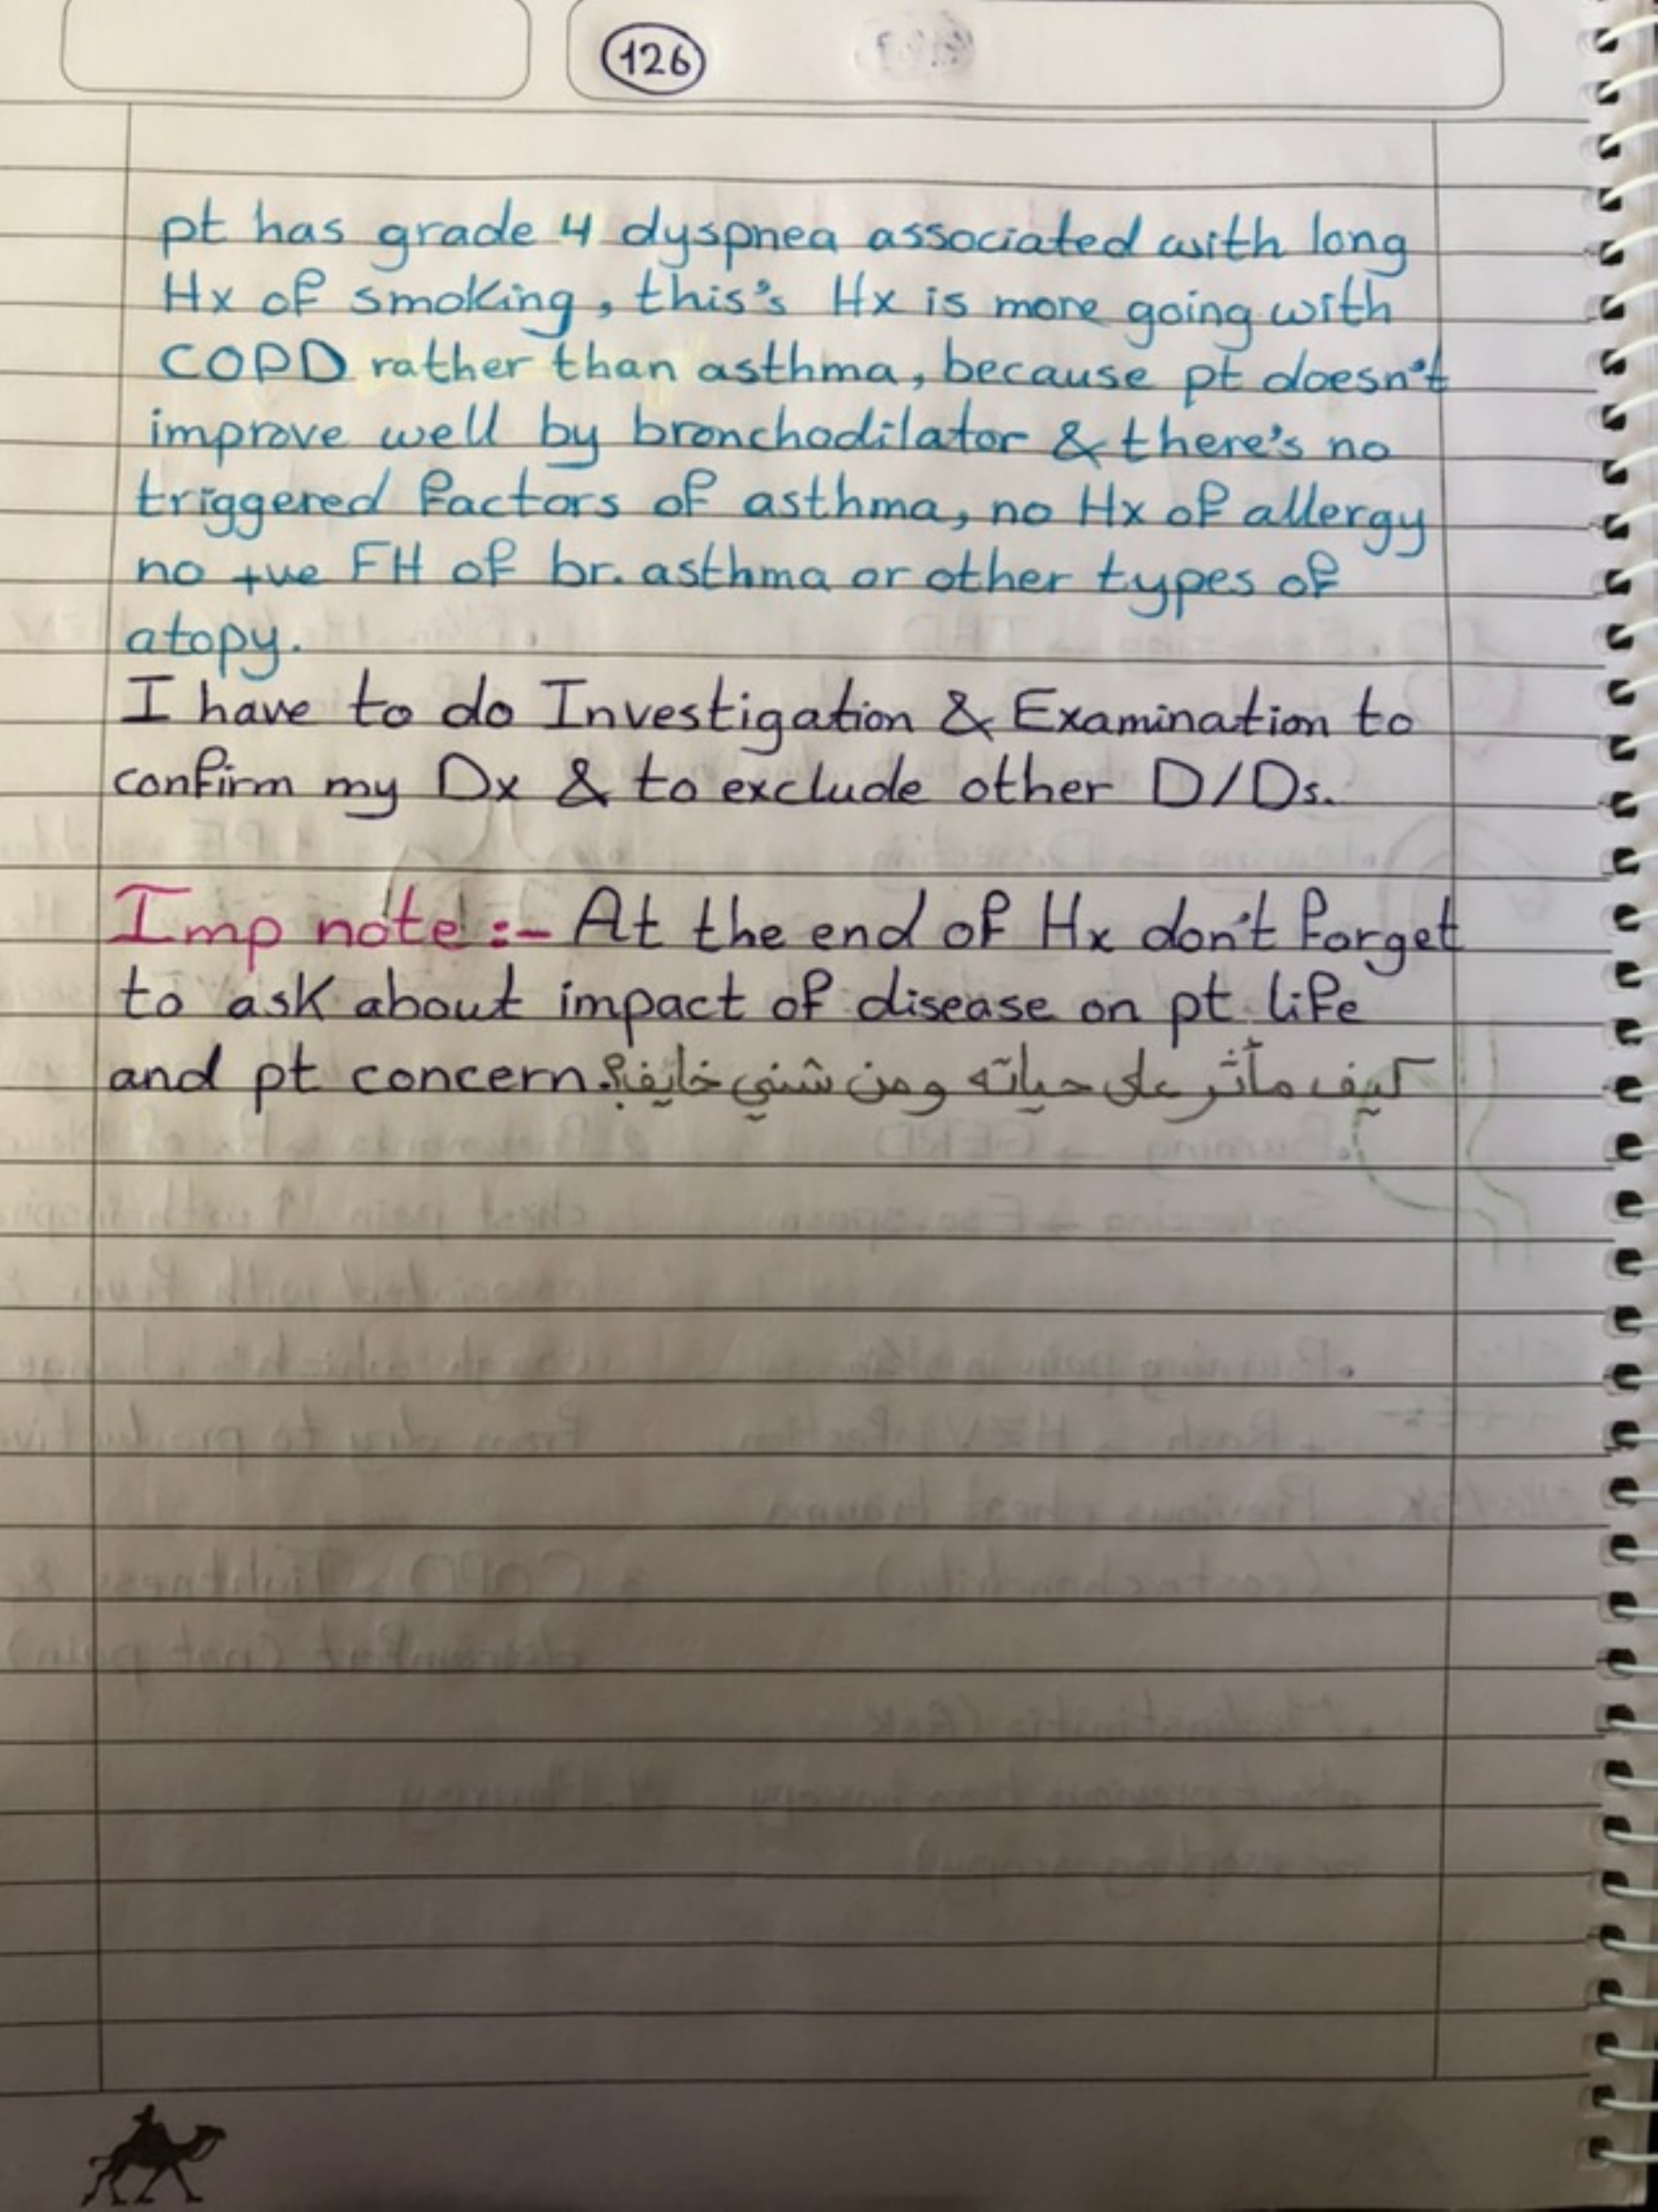 126
pt has grade 4 dyspnea associated with long
Hx of smoking, this's Hx is more going with
COPD rather than asthma, because pt doesn't
improve well by bronchodilator & there's no
triggered factors of asthma, no Hx of allergy
no +ve FH of br. asthma or other types of
atopy.
I have to do Investigation & Examination to
confirm my Dx & to exclude other D/Ds.
Imp note :- At the end of Hx don't forget
to ask about impact of disease on pt life
and pt concern. كيف مأثر على حياته ومن شني خايف؟